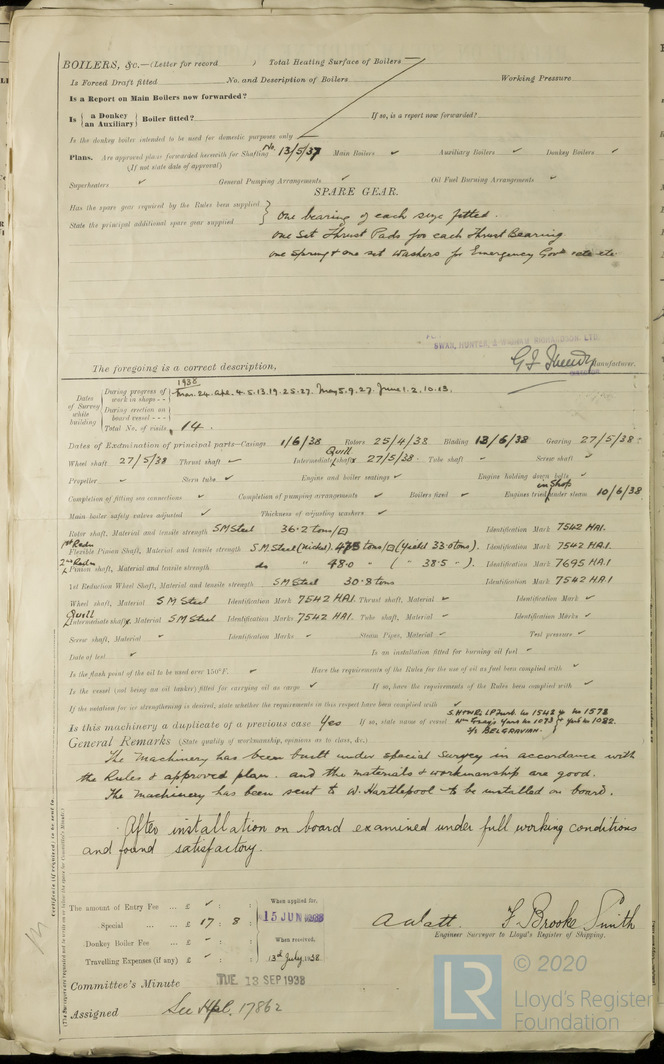 BOILERS, &c.—(Letter for record ) Total Heating Surface of Boilers
Is Forced Draft fitted No. and Description of Boilers Working Pressure
Is a Report on Main Boilers now forwarded?
Is { a Donkey / an Auxiliary } Boiler fitted? If so, is a report now forwarded?
Is the donkey boiler intended to be used for domestic purposes only
Plans. Are approved plans forwarded herewith for Shafting No. 13/5/37 Main Boilers ✓ Auxiliary Boilers ✓ Donkey Boilers ✓
(If not state date of approval)
Superheaters ✓ General Pumping Arrangements ✓ Oil Fuel Burning Arrangements ✓
SPARE GEAR.
Has the spare gear required by the Rules been supplied
State the principal additional spare gear supplied
One bearing of each size fitted.
One Set Thrust Pads for each Thrust Bearing
One Spring & one set Washers for Emergency Govr etc etc.
SWAN, HUNTER, & WIGHAM RICHARDSON, LTD.
The foregoing is a correct description, Manufacturer.
DIRECTOR
Dates of Survey while building
During progress of work in shops - - 1938 Mar. 24. Apl. 4. 5. 13. 19. 25. 27. May 5. 9. 27. June 1. 2. 10. 13.
During erection on board vessel - - -
Total No. of visits 14.
Dates of Examination of principal parts—Casings 1/6/38 Rotors 25/4/38 Blading 13/6/38 Gearing 27/5/38
Wheel shaft 27/5/38 Thrust shaft ✓ Quill Intermediate shafts 27/5/38 Tube shaft ✓ Screw shaft ✓
Propeller ✓ Stern tube ✓ Engine and boiler seatings ✓ Engine holding down bolts ✓
Completion of fitting sea connections ✓ Completion of pumping arrangements ✓ Boilers fixed ✓ Engines tried in Shop under steam 10/6/38
Main boiler safety valves adjusted ✓ Thickness of adjusting washers ✓
Rotor shaft, Material and tensile strength S M Steel 36.2 tons/□ Identification Mark 7542 HAI.
1st Redn Flexible Pinion Shaft, Material and tensile strength S.M. Steel (Nickel). 47.5 tons/□ (Yield 33.0 tons). Identification Mark 7542 HAI
2nd Redn Pinion shaft, Material and tensile strength do " 48.0 " ( " 38.5 " ). Identification Mark 7695 HAI
1st Reduction Wheel Shaft, Material and tensile strength S M Steel 30.8 tons Identification Mark 7542 HAI
Wheel shaft, Material S M Steel Identification Mark 7542 HAI. Thrust shaft, Material ✓ Identification Mark ✓
Quill Intermediate shafts, Material S M Steel Identification Marks 7542 HAI. Tube shaft, Material ✓ Identification Marks ✓
Screw shaft, Material ✓ Identification Marks ✓ Steam Pipes, Material ✓ Test pressure ✓
Date of test ✓ Is an installation fitted for burning oil fuel ✓
Is the flash point of the oil to be used over 150°F. ✓ Have the requirements of the Rules for the use of oil as fuel been complied with ✓
Is the vessel (not being an oil tanker) fitted for carrying oil as cargo ✓ If so, have the requirements of the Rules been complied with ✓
If the notation for ice strengthening is desired, state whether the requirements in this respect have been complied with ✓
Is this machinery a duplicate of a previous case Yes If so, state name of vessel S. HOWE. LP Turb. No 1542 & No 1578
Wm Gray's Yard No 1073 & Yard No 1082.
S/S BELGRAVIAN.
General Remarks (State quality of workmanship, opinions as to class, &c.)
The Machinery has been built under special Survey in accordance with
the Rules & approved plan. and the materials & workmanship are good.
The Machinery has been sent to W. Hartlepool to be installed on board.
After installation on board examined under full working conditions
and found satisfactory.
The amount of Entry Fee ... £ ✓ : :
Special ... ... £ 17 : 8 :
Donkey Boiler Fee ... £ ✓ : :
Travelling Expenses (if any) £ ✓ : :
When applied for,
15 JUN 1938
When received,
13th July 1938
A Watt. F. Brooke Smith
Engineer Surveyor to Lloyd's Register of Shipping.
Committee's Minute TUE 13 SEP 1938
Assigned See Hpl. 17862
LR
© 2020
Lloyd's Register
Foundation